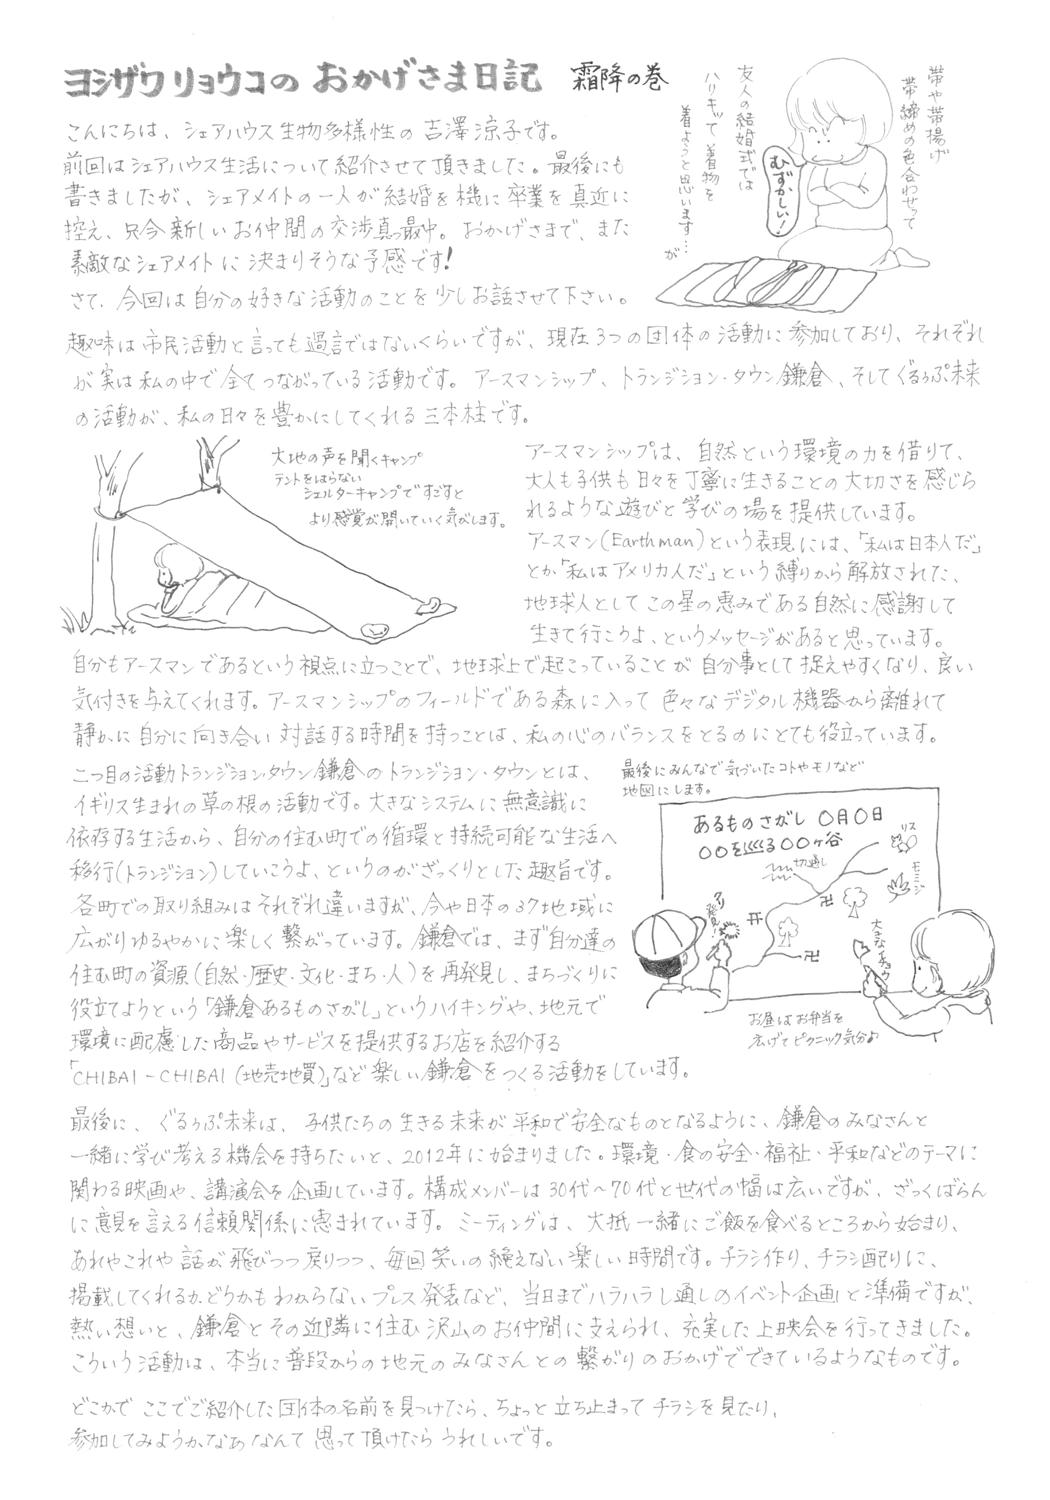 ヨシザワリョウコの おかげさま日記 霜降の巻
帯や帯揚げ
帯締めの色合わせって
むずかしい!
友人の結婚式では
ハリキッて着物を
着ようと思います…が
こんにちは、シェアハウス生物多様性の吉澤涼子です。
前回はシェアハウス生活について紹介させて頂きました。最後にも
書きましたが、シェアメイトの一人が結婚を機に卒業を真近に
控え、只今新しいお仲間の交渉真っ最中。おかげさまで、また
素敵なシェアメイトに決まりそうな予感です!
さて、今回は自分の好きな活動のことを少しお話させて下さい。
趣味は市民活動と言っても過言ではないくらいですが、現在3つの団体の活動に参加しており、それぞれ
が実は私の中で全てつながっている活動です。アースマンシップ、トランジション・タウン鎌倉、そしてぐるぅぷ未来
の活動が、私の日々を豊かにしてくれる三本柱です。
大地の声を聞くキャンプ
テントをはらない
シェルターキャンプですごすと
より感覚が開いていく気がします。
アースマンシップは、自然という環境の力を借りて、
大人も子供も日々を丁寧に生きることの大切さを感じら
れるような遊びと学びの場を提供しています。
アースマン(Earthman)という表現には、「私は日本人だ」
とか「私はアメリカ人だ」という縛りから解放された、
地球人としてこの星の恵みである自然に感謝して
生きて行こうよ、というメッセージがあると思っています。
自分もアースマンであるという視点に立つことで、地球上で起こっていることが自分事として捉えやすくなり、良い
気付きを与えてくれます。アースマンシップのフィールドである森に入って色々なデジタル機器から離れて
静かに自分に向き合い対話する時間を持つことは、私の心のバランスをとるのにとても役立っています。
二つ目の活動トランジション・タウン鎌倉のトランジション・タウンとは、
イギリス生まれの草の根の活動です。大きなシステムに無意識に
依存する生活から、自分の住む町での循環と持続可能な生活へ
移行(トランジション)していこうよ、というのがざっくりとした趣旨です。
各町での取り組みはそれぞれ違いますが、今や日本の37地域に
広がりゆるやかに楽しく繋がっています。鎌倉では、まず自分達の
住む町の資源(自然・歴史・文化・まち・人)を再発見し、まちづくりに
役立てようという「鎌倉あるものさがし」というハイキングや、地元で
環境に配慮した商品やサービスを提供するお店を紹介する
「CHIBAI-CHIBAI(地売地買)」など楽しい鎌倉をつくる活動をしています。
最後にみんなで気づいたコトやモノなど
地図にします。
あるものさがし 〇月〇日
〇〇を巡る〇〇ヶ谷
切通し
リス
モミジ
クリ発見!
大きなイチョウ
お昼はお弁当を
広げてピクニック気分♪
最後に、ぐるぅぷ未来は、子供たちの生きる未来が平和で安全なものとなるように、鎌倉のみなさんと
一緒に学び考える機会を持ちたいと、2012年に始まりました。環境・食の安全・福祉・平和などのテーマに
関わる映画や、講演会を企画しています。構成メンバーは30代〜70代と世代の幅は広いですが、ざっくばらん
に意見を言える信頼関係に恵まれています。ミーティングは、大抵一緒にご飯を食べるところから始まり、
あれやこれや話が飛びつつ戻りつつ、毎回笑いの絶えない楽しい時間です。チラシ作り、チラシ配りに、
掲載してくれるかどうかもわからないプレス発表など、当日までハラハラし通しのイベント企画と準備ですが、
熱い想いと、鎌倉とその近隣に住む沢山のお仲間に支えられ、充実した上映会を行ってきました。
こういう活動は、本当に普段からの地元のみなさんとの繋がりのおかげでできているようなものです。
どこかでここでご紹介した団体の名前を見つけたら、ちょっと立ち止まってチラシを見たり、
参加してみようかなぁなんて思って頂けたらうれしいです。